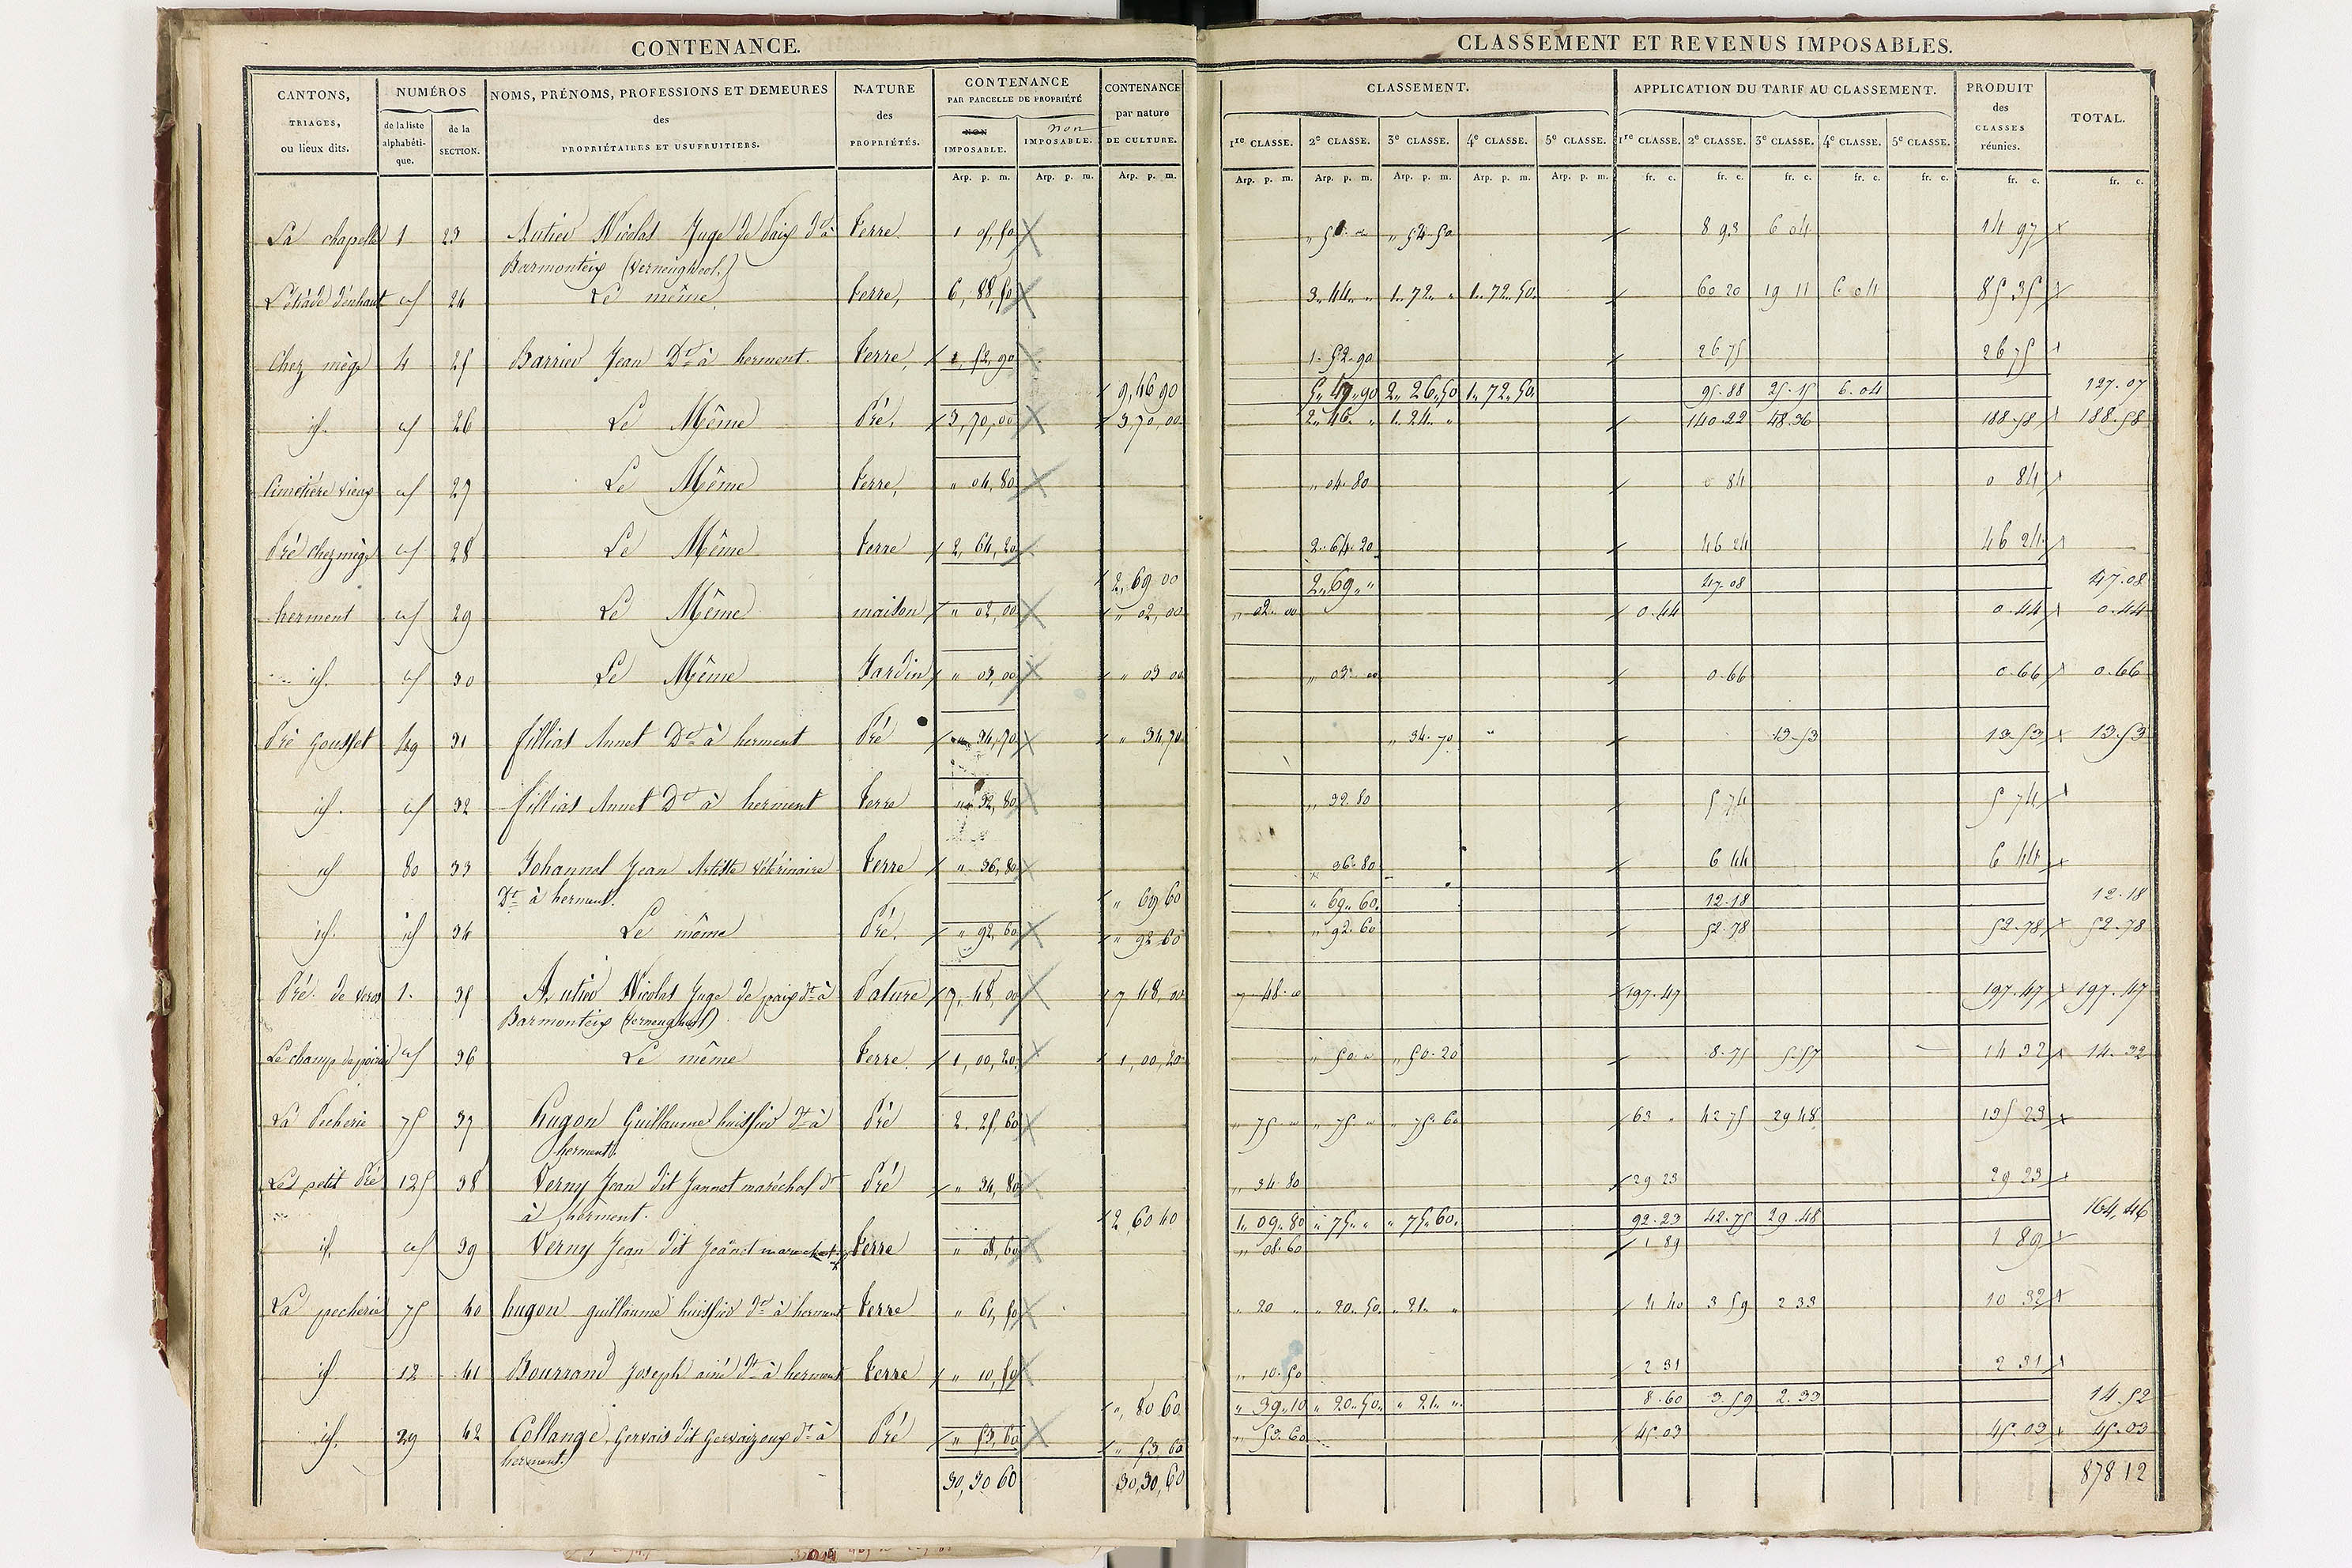 CONTENANCE.
CANTONS, TRIAGES, ou lieux dits. | NUMÉROS de la liste alphabétique. | de la SECTION. | NOMS, PRÉNOMS, PROFESSIONS ET DEMEURES des PROPRIÉTAIRES ET USUFRUITIERS. | NATURE des PROPRIÉTÉS. | CONTENANCE PAR PARCELLE DE PROPRIÉTÉ NON IMPOSABLE. | non IMPOSABLE. | CONTENANCE par nature DE CULTURE.
Arp. p. m. Arp. p. m. Arp. p. m.
La chapelle 1 23 Autier Nicolas Juge de Paix dt à terre 1 05,50
Barmonteix (Verneugheol.)
id 24 Le même terre, 6, 88,50
Chez mège 4 25 Barrier Jean Dt à herment. terre, 1, 52,90
9,46 90
id. id 26 Le Même Pré, 3,70,00 3,70,00
Cimetière vieux id 27 Le Même terre, " 04,80
Pré chez mège id 28 Le Même terre 2, 64,20
2, 69 00
herment id 29 Le Même maison " 02,00 " 02,00
id. id 30 Le Même Jardin " 03,00 " 03 00
Pré Gousset 49 31 fillias Annet Dt à herment Pré " 34,70 " 34,70
id. id 32 fillias Annet Dt à herment terre " 32,80
id 80 33 Johannel Jean Artiste vétérinaire terre " 36,80
Dt à herment. " 69 60
id. id 34 Le même Pré. " 92,60 " 92 60
Pré de 1. 35 Autier Nicolas Juge de paix dt à Pature 7, 48,00 7 48,00
Barmonteix (Verneugheol)
Le champ de id 36 Le même terre. 1,00,20 1,00,20
La Pecherie 75 37 hugon Guillaume huissier dt à Pré 2. 25,60
herment.
Le petit Pré 125 38 Verny Jean dit Jannot maréchal dt Pré " 34,80
à herment. 2 60 40
id. id 39 Verny Jean dit terre " 08,60
La pecherie 75 40 hugon guillaume huissier dt à herment terre " 61,50
id 12 41 Bourrand Joseph ainé dt à herment terre " 10,50
", 80 60
id. 29 42 Collange, Gervais dit Gervaizoux dt à Pré " 53,60 " 53 60
herment.
30,30 60 30,30,60
CLASSEMENT ET REVENUS IMPOSABLES.
CLASSEMENT. | APPLICATION DU TARIF AU CLASSEMENT. | PRODUIT des CLASSES réunies. | TOTAL.
1re CLASSE. 2e CLASSE. 3e CLASSE. 4e CLASSE. 5e CLASSE. 1re CLASSE. 2e CLASSE. 3e CLASSE. 4e CLASSE. 5e CLASSE.
Arp. p. m. Arp. p. m. Arp. p. m. Arp. p. m. Arp. p. m. fr. c. fr. c. fr. c. fr. c. fr. c. fr. c. fr. c.
" 51. " " 54 50 8 93 6 04 14 97
3.. 44.. " 1.. 72.. " 1.. 72..50. 60 20 19 11 6 04 85 35
1. 52..90 26 75 26 75
5.. 47..90 2.. 26..50 1.. 72..50. 95.88 25.15 6.04 127.07
2.. 46. " 1.. 24.. " 140.22 48.36 188.58 188.58
" 04. 80 0 84 0 84
2.. 64. 20 46 24 46 24
2..69.. " 47.08 47.08
" 02. 00 0.44 0.44 0.44
" 03. 00 0.66 0.66 0.66
" 34. 70 13.53 13.53 13.53
" 32. 80 5 74 5 74
" 36. 80 6 44 6 44
" 69.. 60. 12.18 12.18
" 92. 60 52.78 52.78 52.78
7 48. 00 197.47 197.47 197.47
" 50. " " 50. 20 8.75 5.57 14 32 14.32
" 75 " " 75 " " 75. 60 63 " 42 75 29 48 135 23
" 34 80 29 23 29 23
1.. 09.. 80 " 75.. " " 75.. 60. 92.23 42.75 29.48 164,46
" 08. 60 1 89 1 89
" 20 " " 20..50. " 21. " 4 40 3 59 2 33 10 32
" 10. 50 2 31 2 31
" 39..10 " 20..50. " 21.. " 8.60 3.59 2.33 14.52
" 53. 60 45.03 45.03 45.03
878 12